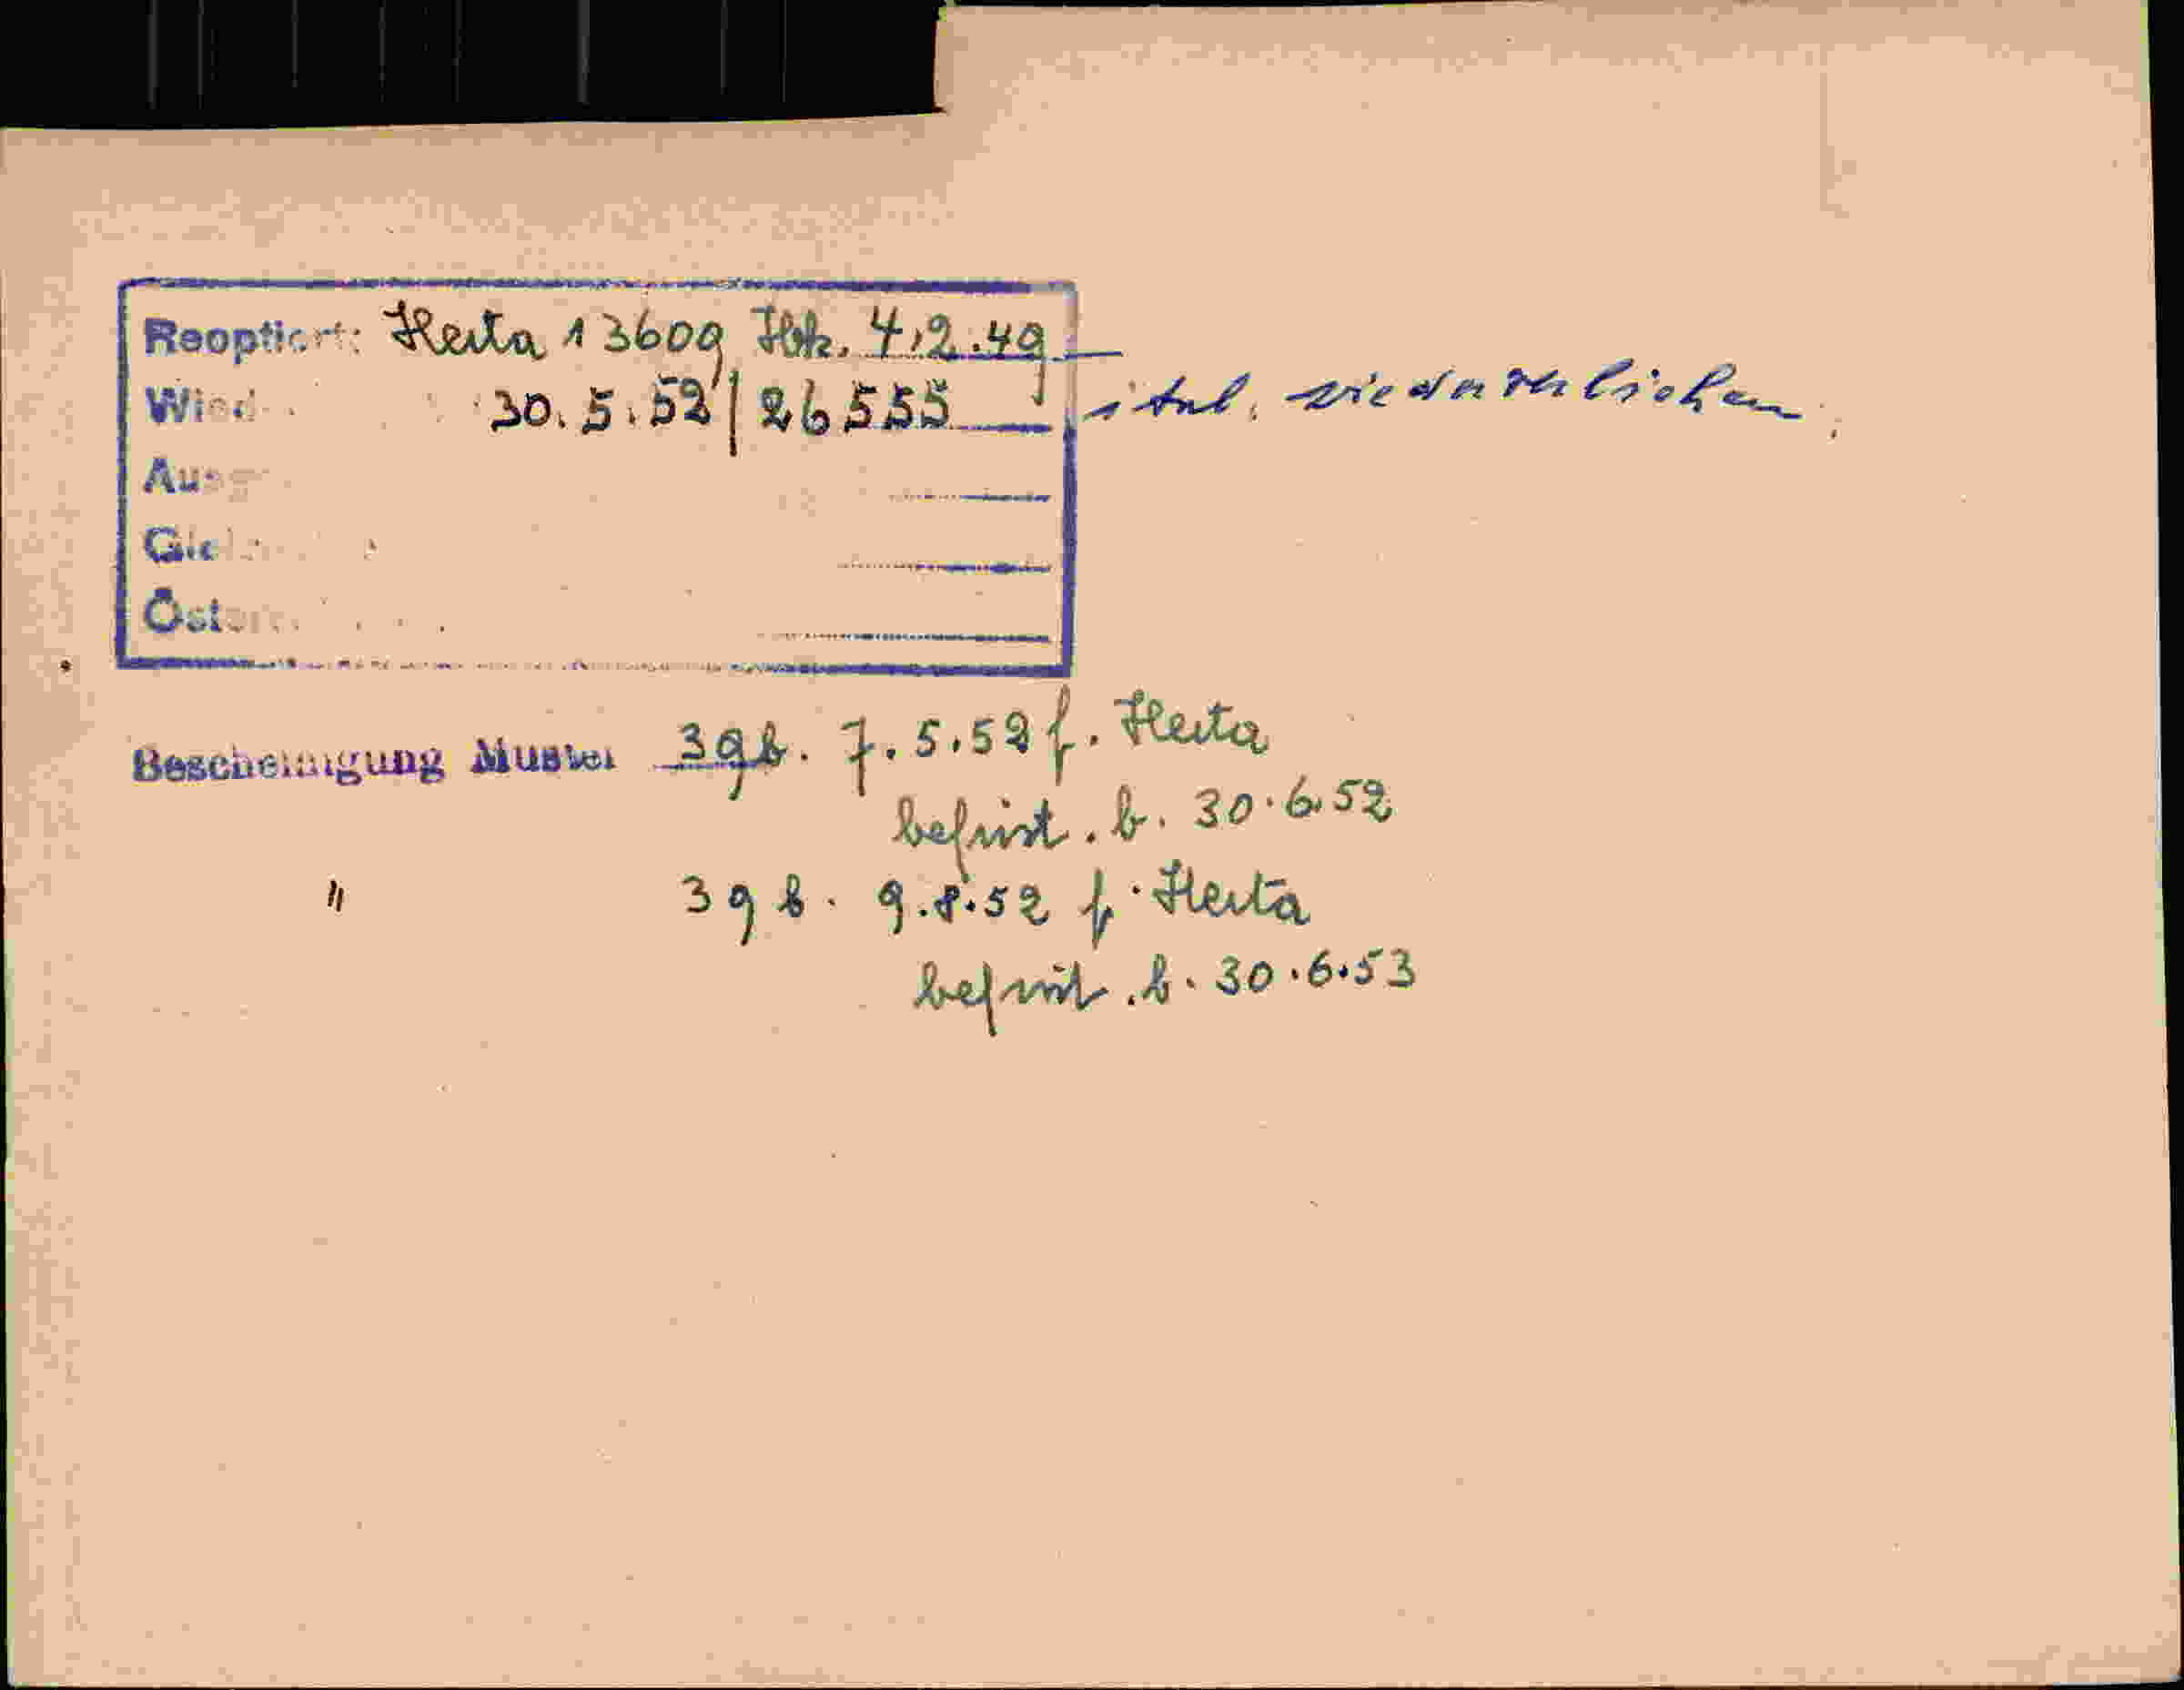 Reoptiert: Herta 13609 Ibk. 4.2.49
30.5.52 | 26555 ital. wiederverliehen.
Bescheinigung Muster 39b. 7.5.52 f. Herta
befrist. b. 30.6.52
" 39b. 9.8.52 f. Herta
befrist. b. 30.6.53